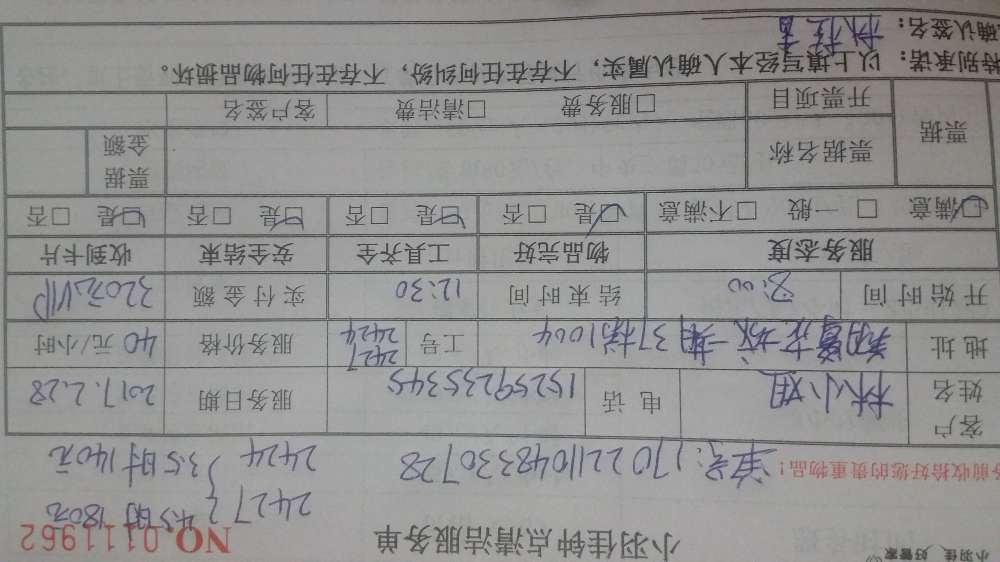 小羽佳 好管家
小羽佳钟点清洁服务单
NO.0111962
务前收拾好您的贵重物品!
单号:1702211048330728
2427 4.5时180元
2424 3.5时140元
客户姓名 林小姐 电话 15259235345 服务日期 2017.2.28
地址 一期37栋1004 工号 2427 2424 服务价格 40元/小时
开始时间 8:00 结束时间 12:30 实付金额 320元VIP
服务态度 物品完好 工具齐全 安全结束 收到卡片
☑满意 □一般 □不满意 ☑是 □否 ☑是 □否 ☑是 □否 ☑是 □否
票据 票据名称 票据金额
开票项目 □服务费 □清洁费 客户签名
特别承诺:以上填写经本人确认属实,不存在任何纠纷,不存在任何物品损坏。
确认签名:林桂香